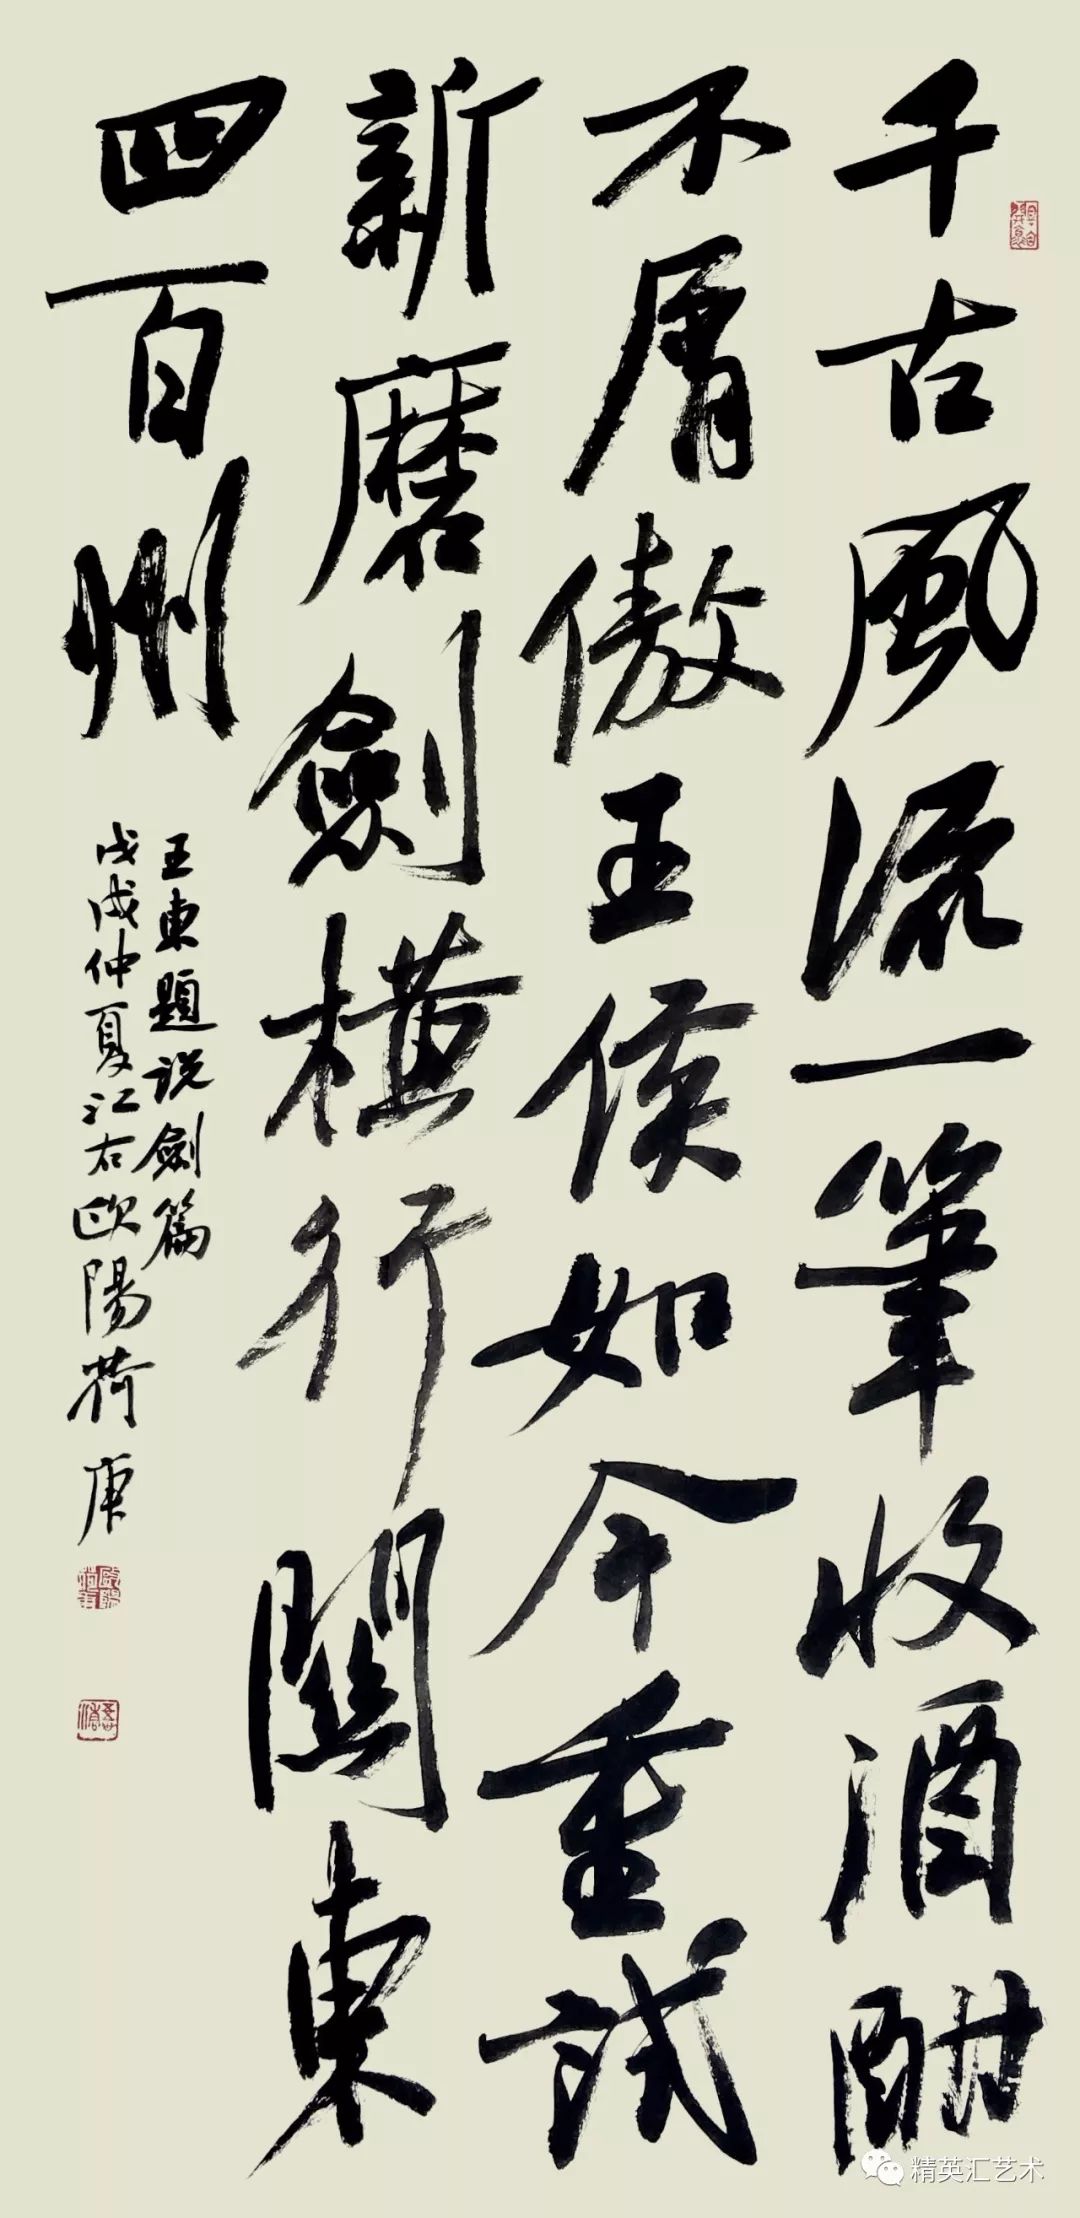 千古風流一筆收酒酣
不屑傲王侯如今重試
新磨劍橫行關東
四百州
王東題說劍篇
戊戌仲夏江右歐陽荷庚
精英汇艺术